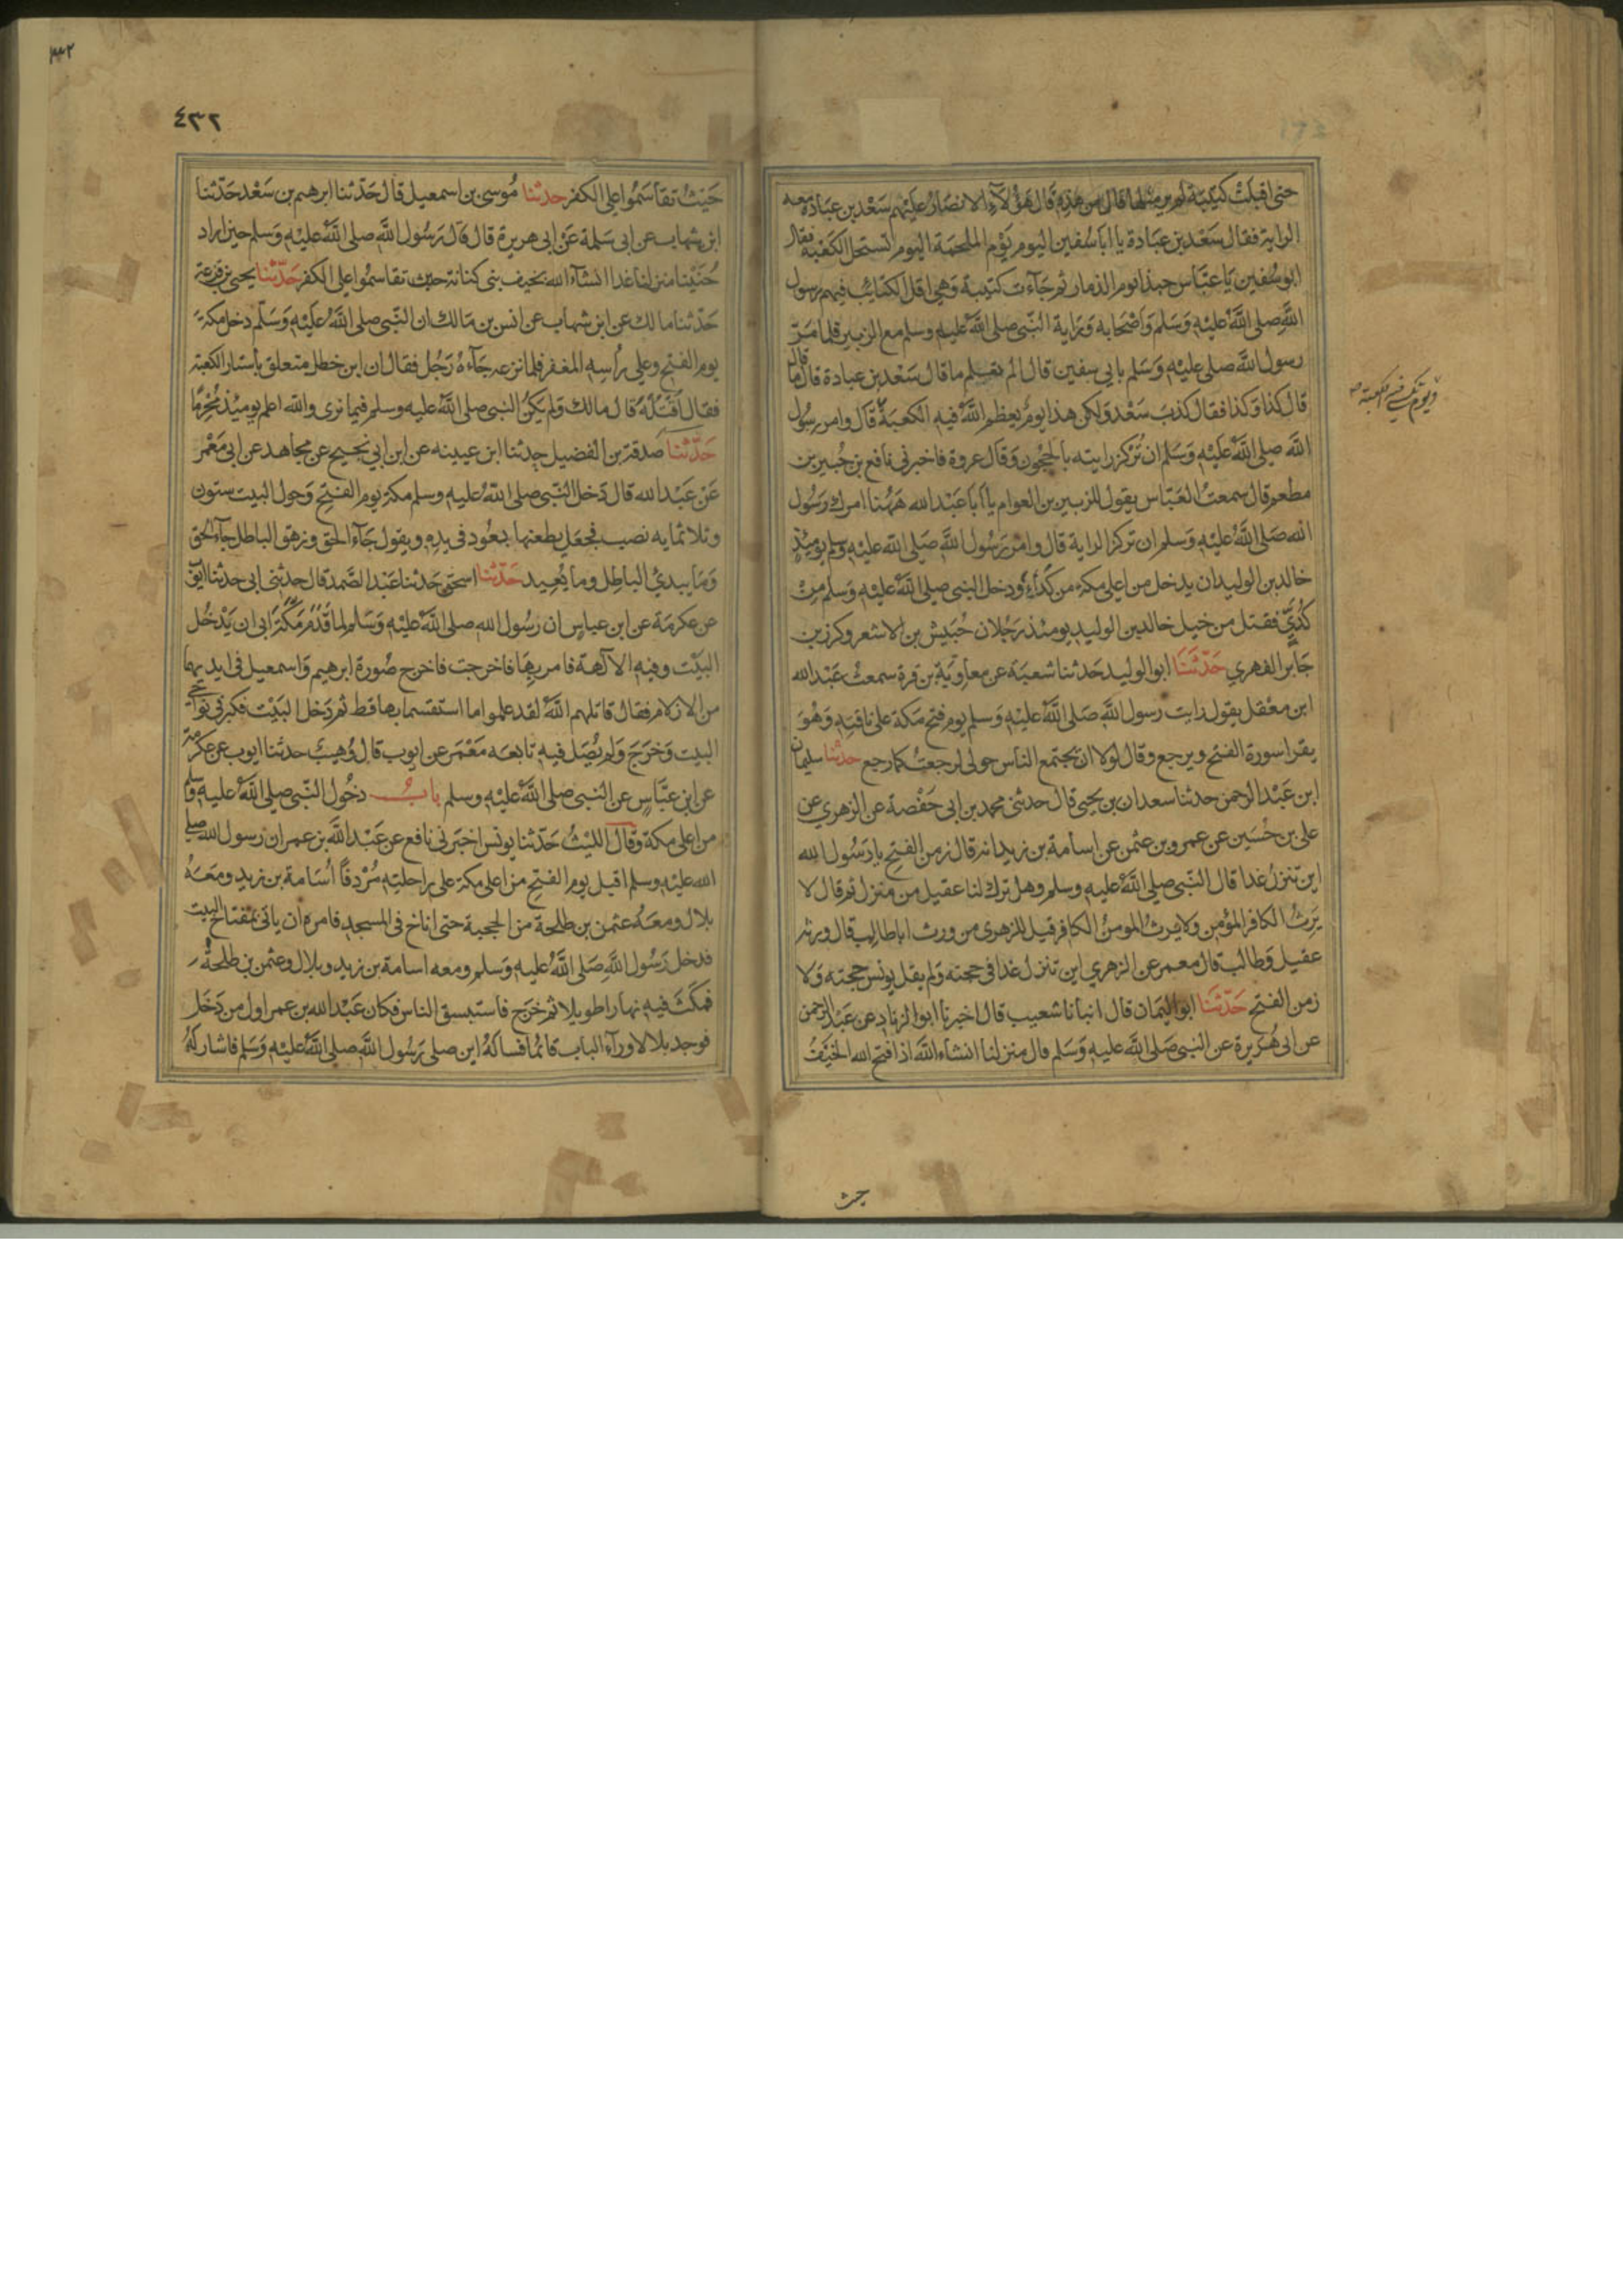 حتى اقبلت كتيبة لم ير مثلها قال من هذه قال هؤلآء الانصار عليهم سعد بن عبادة معه
الراية فقال سعد بن عبادة يا ابا سفين اليوم يوم الملحمة اليوم تستحل الكعبة فقال
ابو سفين يا عباس حبذا يوم الذمار ثم جآءت كتيبة وهي اقل الكتائب فيهم رسول
الله صلى الله عليه وسلم واصحابه وراية النبي صلى الله عليه وسلم مع الزبير فلما مر
رسول الله صلى عليه وسلم بابي سفين قال الم تعلم ما قال سعد بن عبادة قال ما قال
قال كذا وكذا فقال كذب سعد ولكن هذا يوم يعظم الله فيه الكعبة قال وامر رسول
ويوم تكسى فيه الكعبة
الله صلى الله عليه وسلم ان تركز رايته بالحجون وقال عروة فاخبرني نافع بن جبير بن
مطعم قال سمعت العباس يقول للزبير بن العوام يا ابا عبد الله ههنا امرك رسول
الله صلى الله عليه وسلم ان تركز الراية قال وامر رسول الله صلى الله عليه وسلم يومئذ
خالد بن الوليد ان يدخل من اعلى مكة من كداء ودخل النبي صلى الله عليه وسلم من
كدي فقتل من خيل خالد بن الوليد يومئذ رجلان حبيش بن الاشعر وكرز بن
جابر الفهري حدثنا ابو الوليد حدثنا شعبة عن معاوية بن قرة سمعت عبد الله
ابن مغفل يقول رايت رسول الله صلى الله عليه وسلم يوم فتح مكة على ناقته وهو
يقرا سورة الفتح ويرجع وقال لولا ان يجتمع الناس حولي لرجعت كما رجع حدثنا سليمان
ابن عبد الرحمن حدثنا سعدان بن يحيى قال حدثني محمد بن ابي حفصة عن الزهري عن
علي بن حسين عن عمرو بن عثمن عن اسامة بن زيد انه قال زمن الفتح يا رسول الله
اين تنزل غدا قال النبي صلى الله عليه وسلم وهل ترك لنا عقيل من منزل ثم قال لا
يرث الكافر المؤمن ولا يرث المومن الكافر قيل للزهري من ورث ابا طالب قال ورثه
عقيل وطالب قال معمر عن الزهري اين تنزل غدا في حجته ولم يقل يونس حجته ولا
زمن الفتح حدثنا ابو اليمان قال انبانا شعيب قال اخبرنا ابو الزناد عن عبد الرحمن
عن ابي هريرة عن النبي صلى الله عليه وسلم قال منزلنا انشاء الله اذا فتح الله الخيف
حيث
٤٣٢
حيث تقاسموا على الكفر حدثنا موسى بن اسمعيل قال حدثنا ابرهيم بن سعد حدثنا
ابن شهاب عن ابي سلمة عن ابي هريرة قال قال رسول الله صلى الله عليه وسلم حين اراد
حنينا منزلنا غدا انشآء الله بخيف بني كنانة حيث تقاسموا على الكفر حدثنا يحيى بن قزعة
حدثنا مالك عن ابن شهاب عن انس بن مالك ان النبي صلى الله عليه وسلم دخل مكة
يوم الفتح وعلى رأسه المغفر فلما نزعه جآءه رجل فقال ان ابن خطل متعلق بأستار الكعبة
فقال اقتله قال مالك ولم يكن النبي صلى الله عليه وسلم فيما نرى والله اعلم يومئذ محرما
حدثنا صدقة بن الفضيل حدثنا ابن عيينه عن ابن ابي نجيح عن مجاهد عن ابي معمر
عن عبد الله قال دخل النبي صلى الله عليه وسلم مكة يوم الفتح وحول البيت ستون
وثلاثمايه نصب فجعل يطعنها بعود في يده ويقول جآء الحق وزهق الباطل جآء الحق
وما يبدئ الباطل وما يعيد حدثنا اسحق حدثنا عبد الصمد قال حدثني ابي حدثنا ايوب
عن عكرمة عن ابن عباس ان رسول الله صلى الله عليه وسلم لما قدم مكة ابى ان يدخل
البيت وفيه الآلهة فامر بها فاخرجت فاخرج صورة ابرهيم واسمعيل في ايديهما
من الازلام فقال قاتلهم الله لقد علموا ما استقسما بها قط ثم دخل البيت فكبر في نواحي
البيت وخرج ولم يصل فيه تابعه معمر عن ايوب قال وهيب حدثنا ايوب عن عكرمة
عن ابن عباس عن النبي صلى الله عليه وسلم باب دخول النبي صلى الله عليه وسلم
من اعلى مكة وقال الليث حدثنا يونس اخبرني نافع عن عبد الله بن عمر ان رسول الله صلى
الله عليه وسلم اقبل يوم الفتح من اعلى مكة على راحلته مردفا اسامة بن زيد ومعه
بلال ومعه عثمن بن طلحة من الحجبة حتى اناخ في المسجد فامره ان ياتي بمفتاح البيت
فدخل رسول الله صلى الله عليه وسلم ومعه اسامة بن زيد وبلال وعثمن بن طلحة
فمكث فيه نهارا طويلا ثم خرج فاستبسق الناس فكان عبد الله بن عمر اول من دخل
فوجد بلالا ورآء الباب قائما فساله اين صلى رسول الله صلى الله عليه وسلم فاشار له